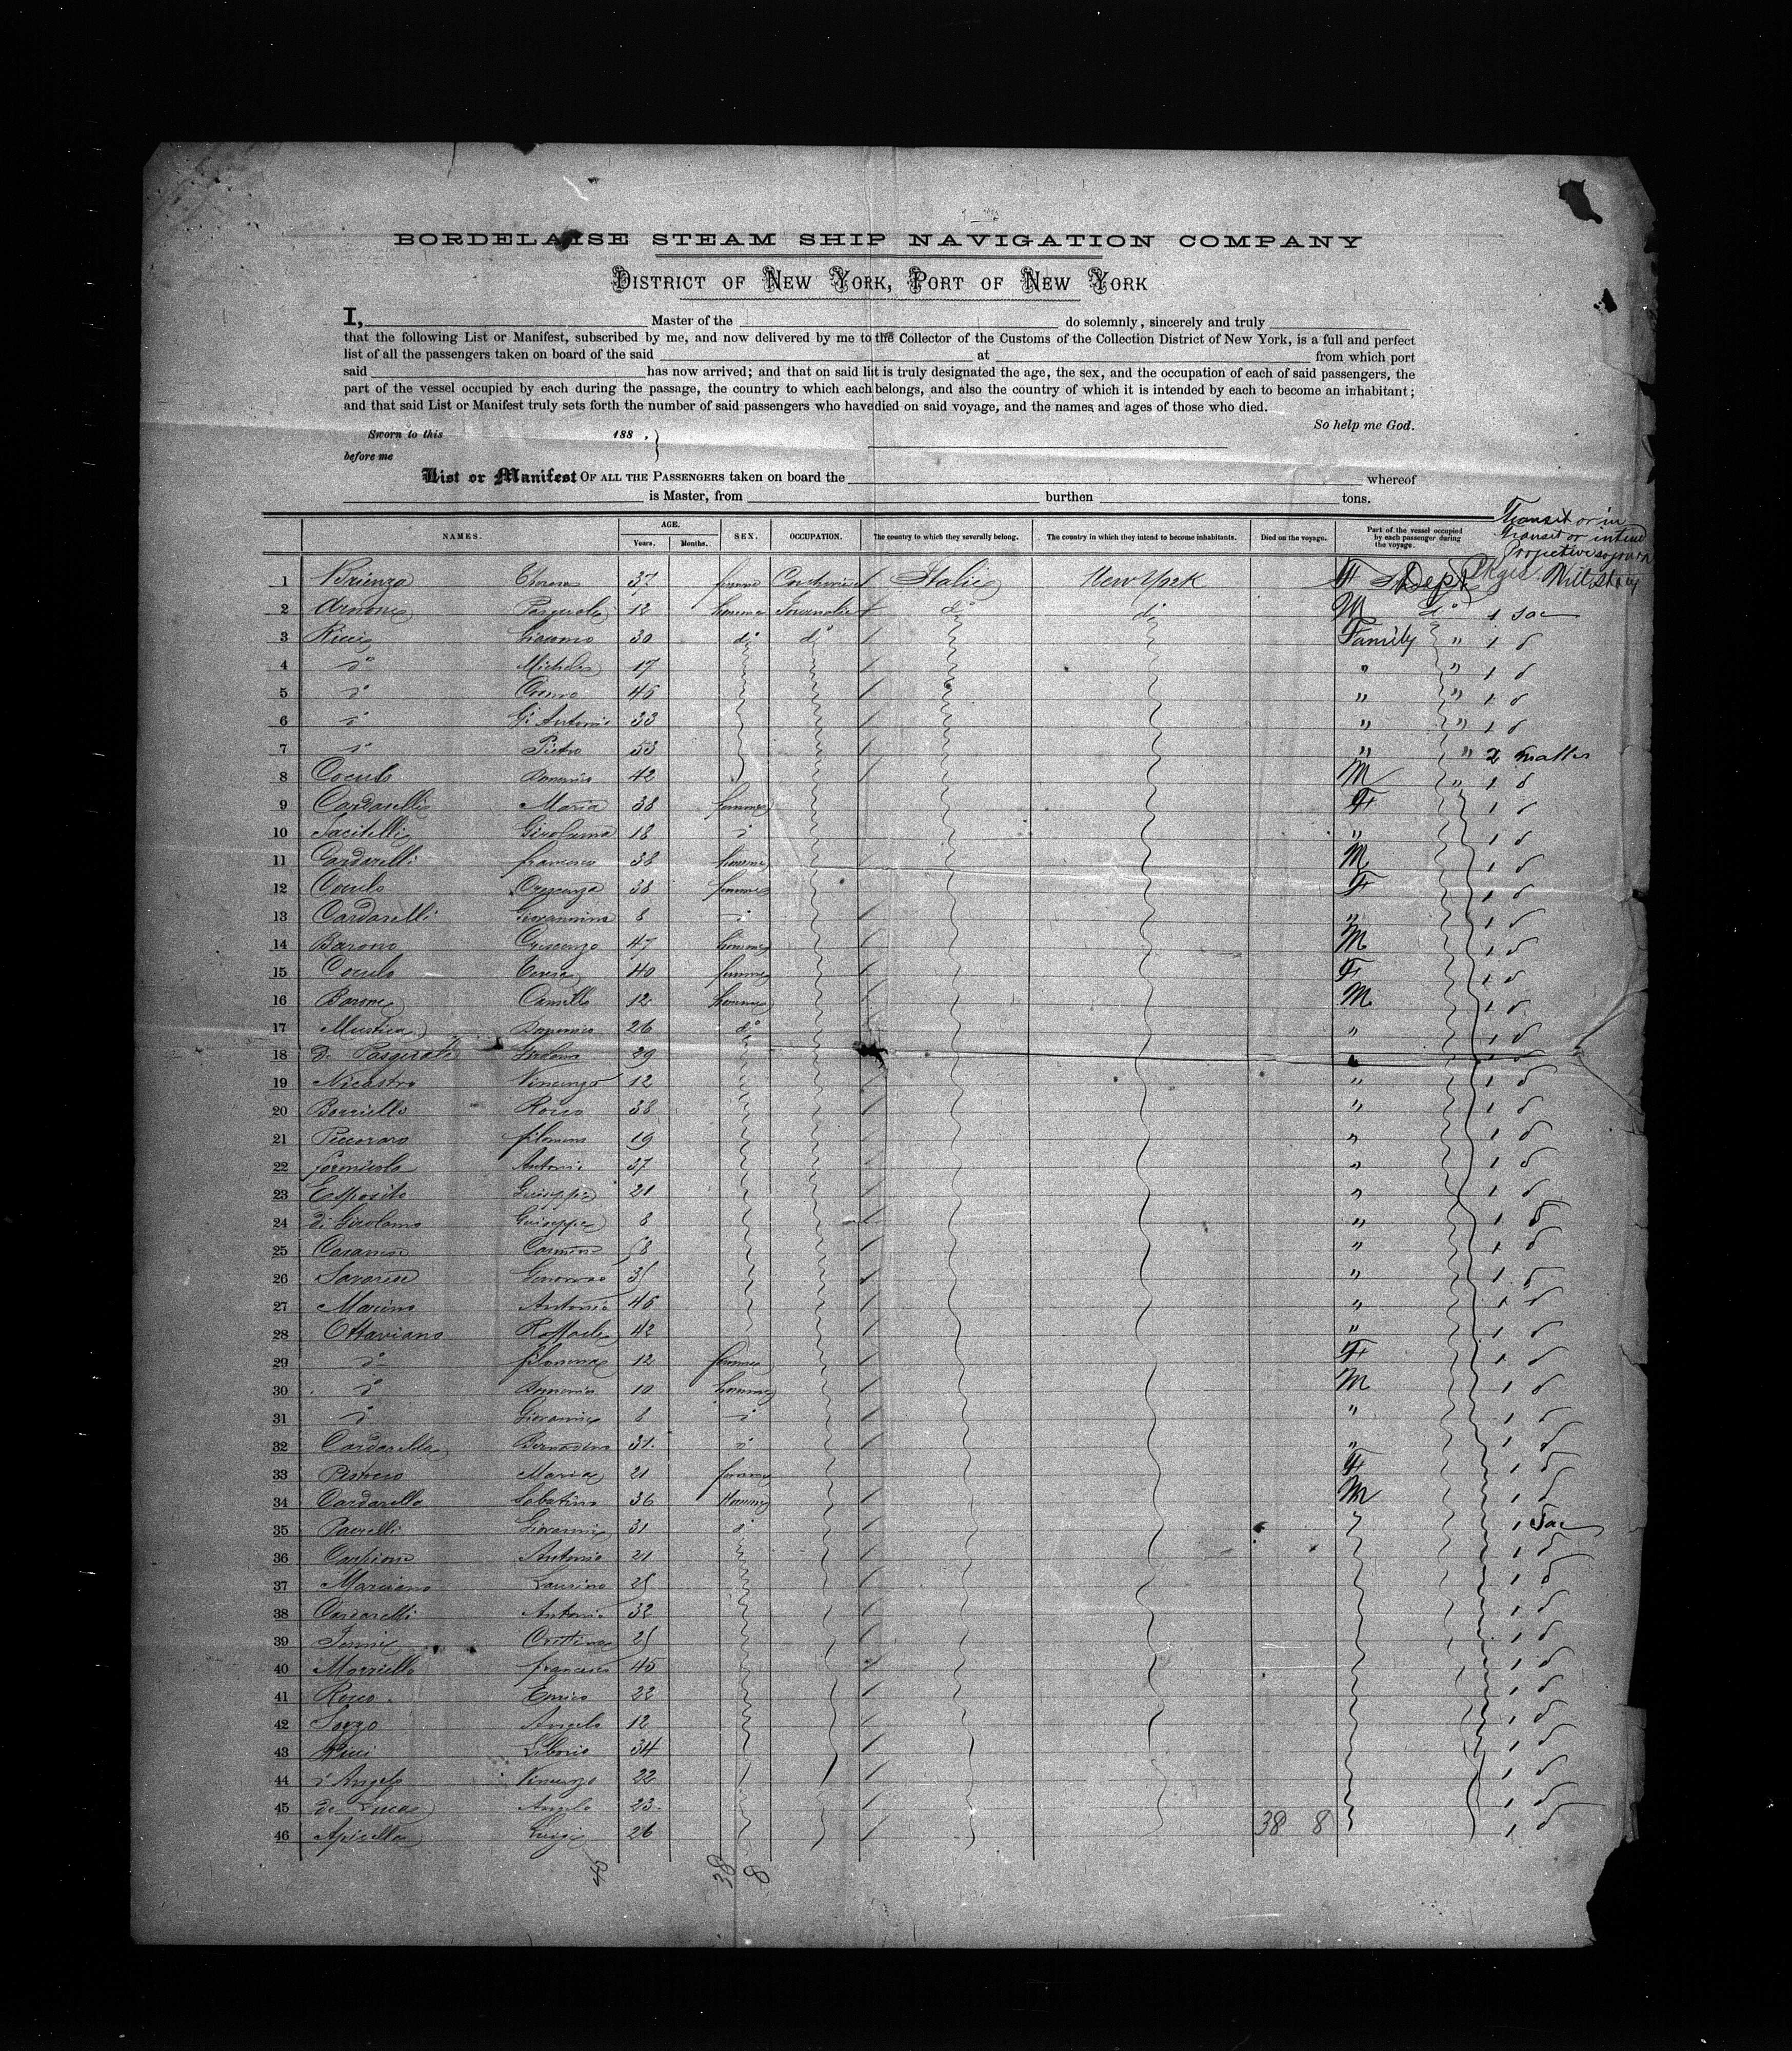 BORDELAISE STEAM SHIP NAVIGATION COMPANY
DISTRICT OF NEW YORK, PORT OF NEW YORK
I, Master of the do solemnly, sincerely and truly
that the following List or Manifest, subscribed by me, and now delivered by me to the Collector of the Customs of the Collection District of New York, is a full and perfect
list of all the passengers taken on board of the said at from which port
said has now arrived; and that on said list is truly designated the age, the sex, and the occupation of each of said passengers, the
part of the vessel occupied by each during the passage, the country to which each belongs, and also the country of which it is intended by each to become an inhabitant;
and that said List or Manifest truly sets forth the number of said passengers who have died on said voyage, and the names and ages of those who died.
So help me God.
Sworn to this 188 . }
before me
List or Manifest OF ALL THE PASSENGERS taken on board the whereof
is Master, from burthen tons.
NAMES. AGE. Years. Months. SEX. OCCUPATION. The country to which they severally belong. The country in which they intend to become inhabitants. Died on the voyage. Part of the vessel occupied by each passenger during the voyage.
Transit or in
transit or intend
1 Brienza 37 femme Italie New York F Dept Pkgs
2 Arnone Pasquale 12 homme Journalier do do M do 1 Sac
3 Ricci Giacomo 30 do do Family " 1 d
4 do Michele 17 " " 1 d
5 do 45 " " 1 d
6 do Gi Antonio 33 " " 1 d
7 do Pietro 53 " " 2 malles
8 Coculo Domenico 42 M " 1 d
9 Cardarelli Maria 38 femme F 1 d
10 Jacitelli Girolama 18 d " 1 d
11 Cardarelli francesco 38 homme M 1 d
12 Coculo Crescenza 38 femme F 1 d
13 Cardarelli Giovannina 8 d " 1 d
14 Barone Crescenzo 47 homme M 1 d
15 Coculo 40 femme F 1 d
16 Barone Camillo 12 homme M 1 d
17 Mustica Domenico 26 do " 1 d
18 di Pasquale 29 1 d
19 Nicastro Vincenzo 12 " 1 d
20 Borriello Rocco 38 " 1 d
21 Peccoraro filomeno 19 " 1 d
22 formicola Antonio 37 " 1 d
23 Esposito Guiseppe 21 " 1 d
24 di Girolamo Guiseppe 8 " 1 d
25 Carmine " 1 d
26 Savarese " 1 d
27 Marino Antonio 46 " 1 d
28 Ottaviano Raffaele 42 " 1 d
29 do filomena 12 femme F 1 d
30 do Domenico 10 homme M 1 d
31 do Giovanni 8 d " 1 d
32 Cardarella 31 d " 1 d
33 Maria 21 femme F 1 d
34 Cardarella Sabatino 36 Homme M 1 d
35 Giovanni 31 d 1 Sac
36 Antonio 21 1 d
37 Marciano 1 d
38 Cardarelli Antonio 32 1 d
39 1 d
40 Morriello francesco 45 1 d
41 Rocco Enrico 22 1 d
42 Angelo 12 1 d
43 Ricci Liborio 34 1 d
44 d'Angelo Vincenzo 22 1 d
45 de Lucas Angelo 23 1 d
46 Apicella Luigi 26 38 8 1 d
38 8